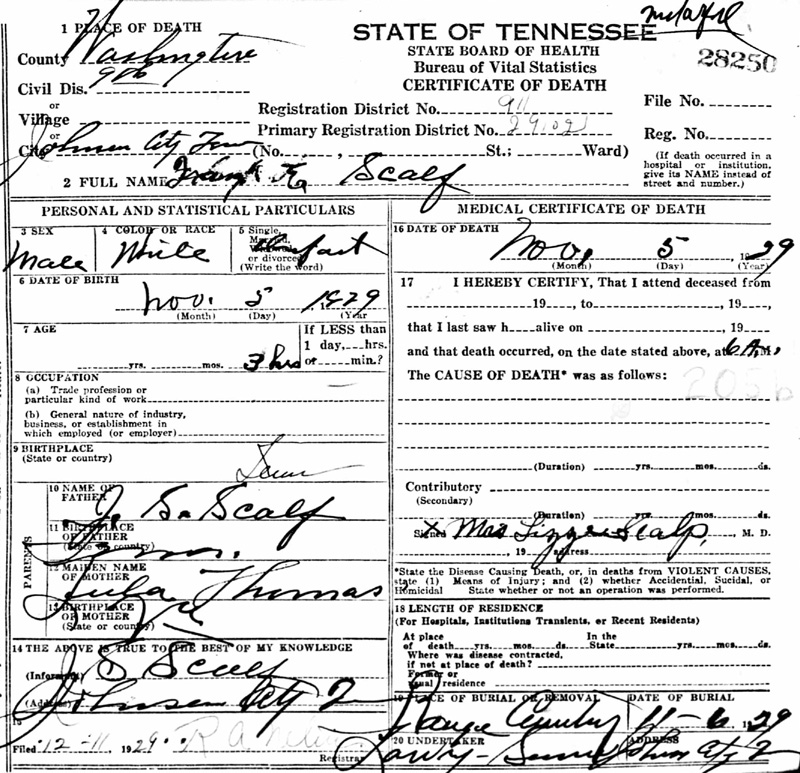 1 PLACE OF DEATH
County Washington
Civil Dis.
or
Village
or
City Johnson City Tenn (No. , St.; Ward)
STATE OF TENNESSEE
STATE BOARD OF HEALTH
Bureau of Vital Statistics
CERTIFICATE OF DEATH
28250
Registration District No. 911
File No.
Primary Registration District No. 29102
Reg. No.
(If death occurred in a hospital or institution, give its NAME instead of street and number.)
2 FULL NAME Scalf
PERSONAL AND STATISTICAL PARTICULARS
3 SEX
Male
4 COLOR OR RACE
White
5 Single, Married, or divorced (Write the word)
Infant
6 DATE OF BIRTH
Nov. 5 1929
(Month) (Day) (Year
7 AGE
yrs. mos. 3 hrs
If LESS than
1 day, hrs.
or min.?
8 OCCUPATION
(a) Trade profession or
particular kind of work
(b) General nature of industry,
business, or establishment in
which employed (or employer)
9 BIRTHPLACE
(State or country)
Tenn
PARENTS
10 NAME OF FATHER
J. S. Scalf
11 BIRTHPLACE OF FATHER
(State or country)
Tenn.
12 MAIDEN NAME OF MOTHER
Thomas
13 BIRTHPLACE OF MOTHER
(State or country)
14 THE ABOVE IS TRUE TO THE BEST OF MY KNOWLEDGE
(Informant) J S Scalf
(Address) Johnson City 2
Filed 12-11 1929
Registrar
MEDICAL CERTIFICATE OF DEATH
16 DATE OF DEATH
Nov. 5 1929
(Month) (Day) (Year)
17 I HEREBY CERTIFY, That I attend deceased from
19 , to , 19 ,
that I last saw h alive on , 19
and that death occurred, on the date stated above, at 6 A.M.
The CAUSE OF DEATH* was as follows:
205b
(Duration) yrs. mos. ds.
Contributory
(Secondary)
(Duration) yrs. mos. ds.
Signed X Mrs Lizzie Scalf, M. D.
, 19 address
*State the Disease Causing Death, or, in deaths from VIOLENT CAUSES,
state (1) Means of Injury; and (2) whether Accidental, Sucidal, or
Homicidal State whether or not an operation was performed.
18 LENGTH OF RESIDENCE
(For Hospitals, Institutions Transients, or Recent Residents)
At place
of death yrs. mos. ds.
In the
State yrs. mos. ds.
Where was disease contracted,
if not at place of death?
Former or
usual residence
19 PLACE OF BURIAL OR REMOVAL
DATE OF BURIAL
11-6 1929
20 UNDERTAKER
ADDRESS
Johnson City 2